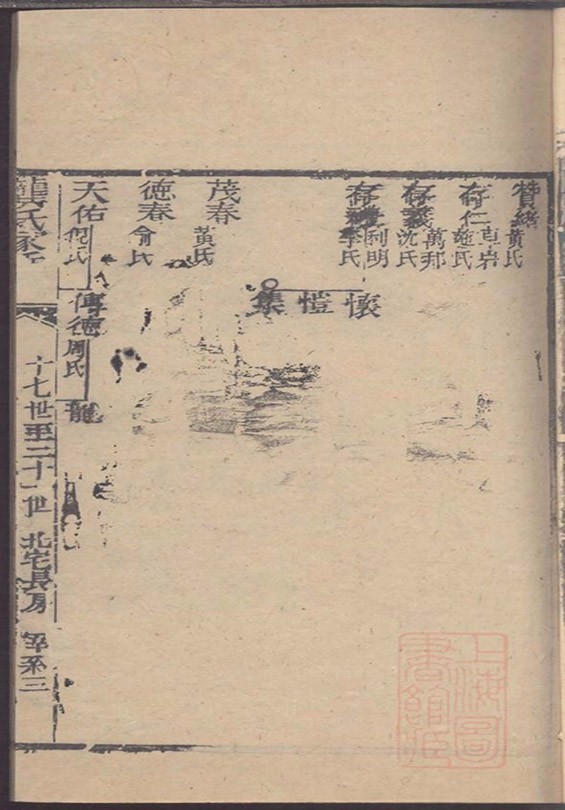 贊緒 黃氏
存仁 卓岩 施氏
存義 萬邦 沈氏
存 利明 李氏
懷 愷 集
茂春 黃氏
德春 俞氏
天佑 倪氏 傳德 周氏 龍
龔氏家
十七世至二十一世 北宅長房 系三
上海圖書館藏